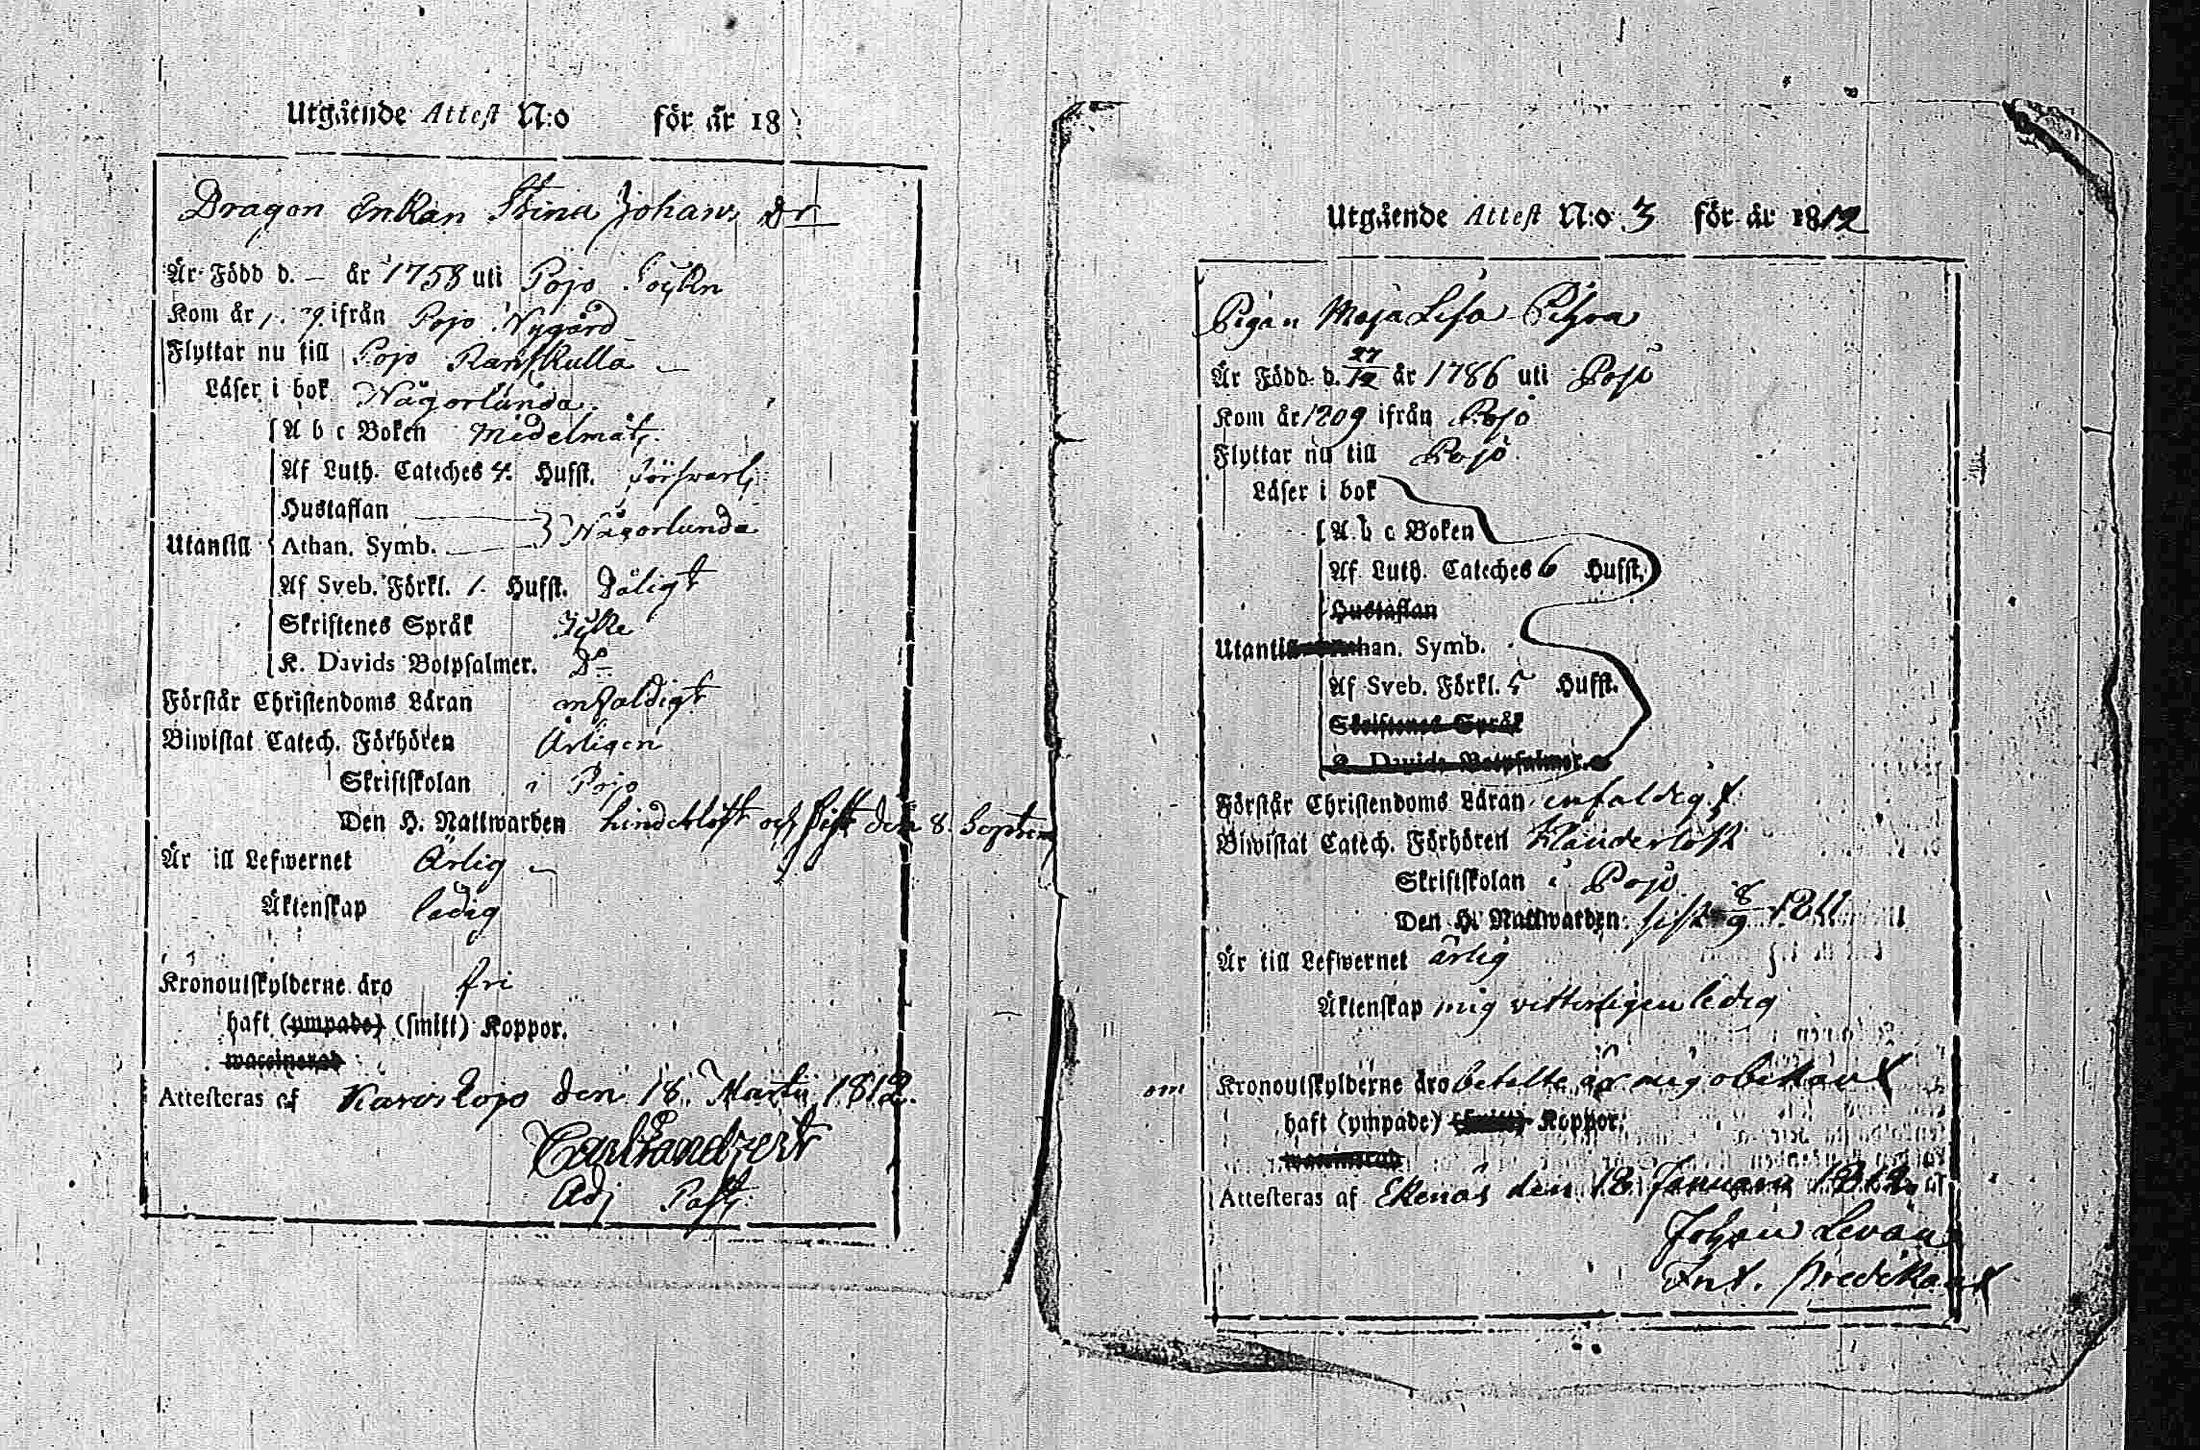 Utgående Attest N:o för år 18
Dragon Enkan Stina Johans Dr
Är Född d. – år 1758 uti Pojo Sockn
Kom år ifrån Pojo Nygård
Flyttar nu till Pojo Ranskulla
Läser i bok Någorlunda.
A b c Boken Medelmåt:
Af Luth. Cateches 4. Hufst. Försvarl:
Hustaflan
Utantill Athan. Symb. Någorlunda
Af Sveb. Förkl. 1. Hufst. Dåligt
Skriftenes Språk Icke
K. Davids Botpsalmer. Do
Förstår Christendoms Läran enfaldigt
Biwistat Catech. Förhören Årligen
Skriftskolan i Pojo
Den H. Nattwarden hinderlöst och sist den 8. Septem
Är till Lefwernet Ärlig
Äktenskap ledig
Kronoutskylderne äro fri
haft (ympade) (smitt) Koppor.
waccinerad
Attesteras af Karislojo den 18. Martii 1812.
Carl
Adj Past:
Utgående Attest N:o 3 för år 1812
Pigan Maja Lisa
Är Född d. 27/12 år 1786 uti Pojo
Kom år 1809 ifrån Pojo
Flyttar nu till Pojo
Läser i bok
A b c Boken
Af Luth. Cateches 6 Hufst.
Hustaflan
Utantill Athan. Symb.
Af Sveb. Förkl. 5 Hufst.
Skriftenes Språk
K. Davids Botpsalmer.
Förstår Christendoms Läran enfaldigt
Biwistat Catech. Förhören Klanderlöst
Skriftskolan i Pojo
Den H. Nattwarden sist 8/9 1811
Är till Lefwernet ärlig
Äktenskap mig vitterligen ledig
om Kronoutskylderne äro betalte är mig obekant
haft (ympade) (smitt) Koppor.
waccinerad
Attesteras af Ekenäs den 18 Januarii 1812
Johan Levan
Int. predikant